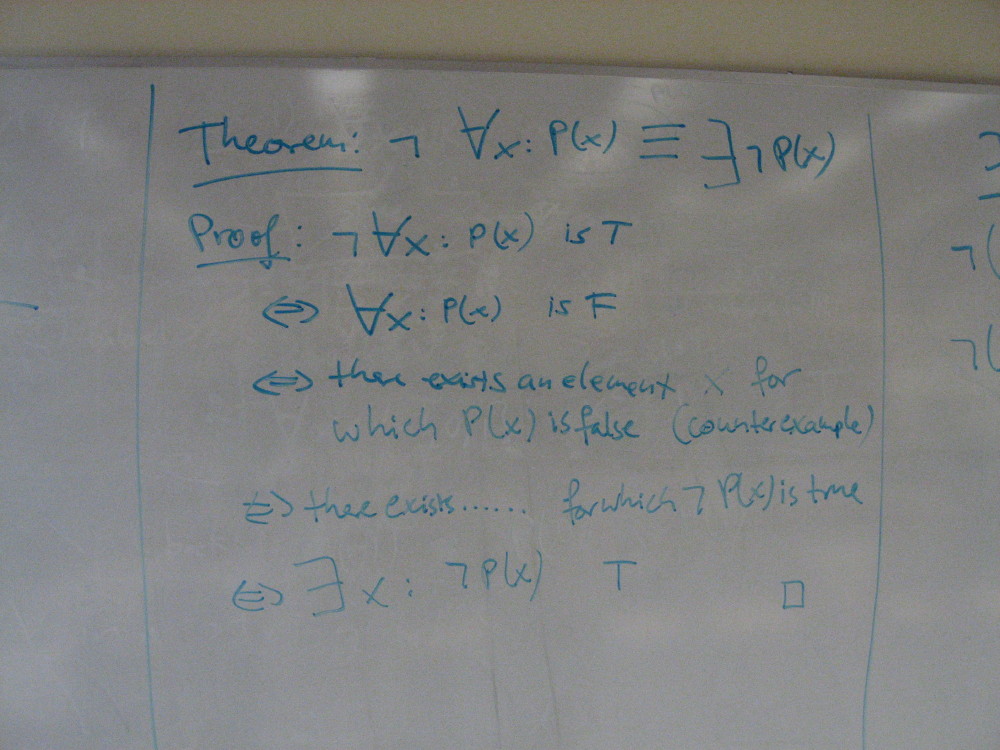 Theorem: ¬ ∀x: P(x) ≡ ∃ ¬P(x)
Proof: ¬∀x: P(x) is T
⇔ ∀x: P(x) is F
⇔ there exists an element x for
which P(x) is false (counterexample)
⇔ there exists...... for which ¬ P(x) is true
⇔ ∃x: ¬P(x) T □
¬(
¬(